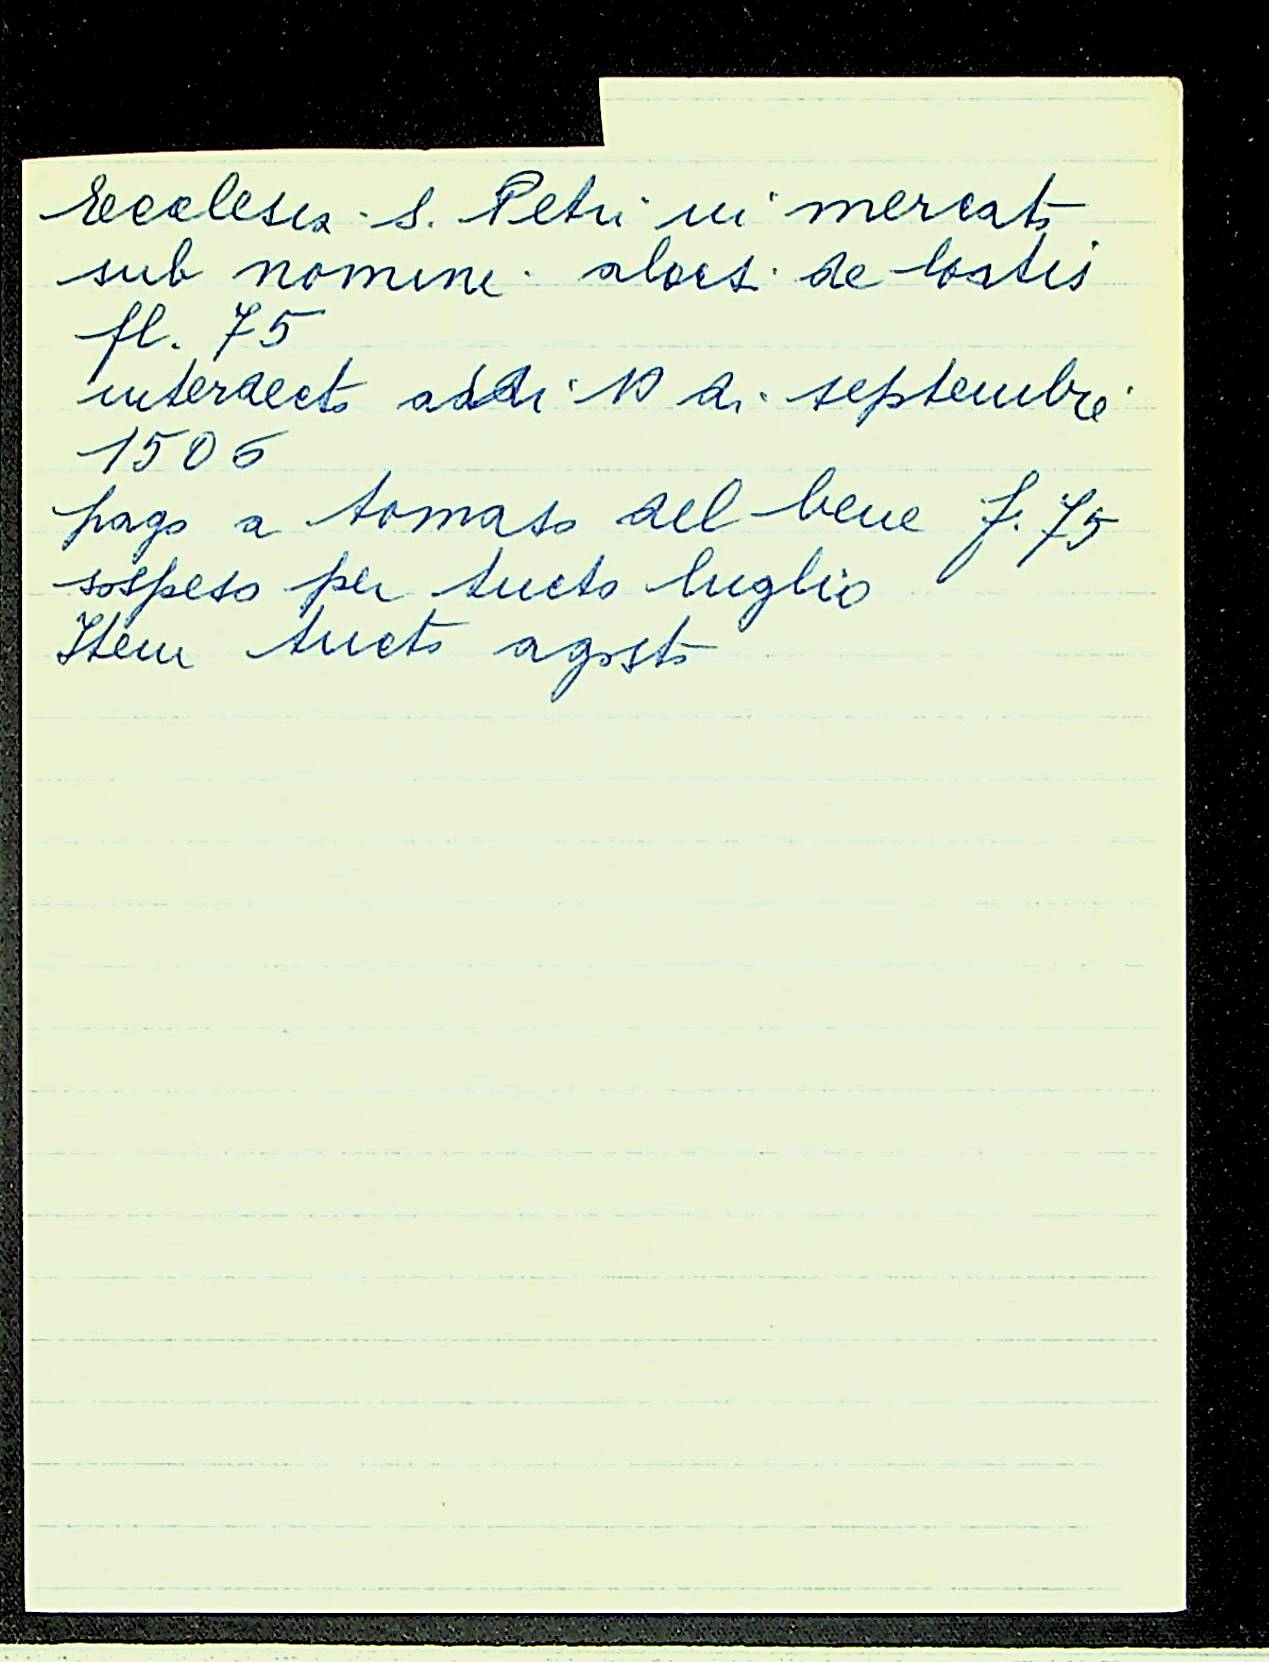 Ecclesia S. Petri in mercato
sub nomine de
fl. 75
interdecto addi 10 di septembre
1506
pago a tomaso del bene f. 75
sospeso per tucto luglio
Item tucto agosto